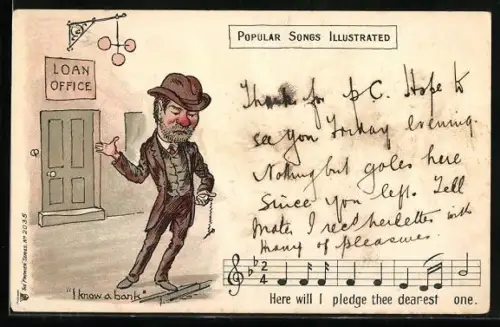 POPULAR SONGS ILLUSTRATED
LOAN OFFICE
Thanks for p.C. Hope to
see you Friday evening.
Nothing but gales here
Since you left. Tell
Mater I recd her letter with
many of pleasures.
"I know a bank"
Here will I pledge thee dearest one.